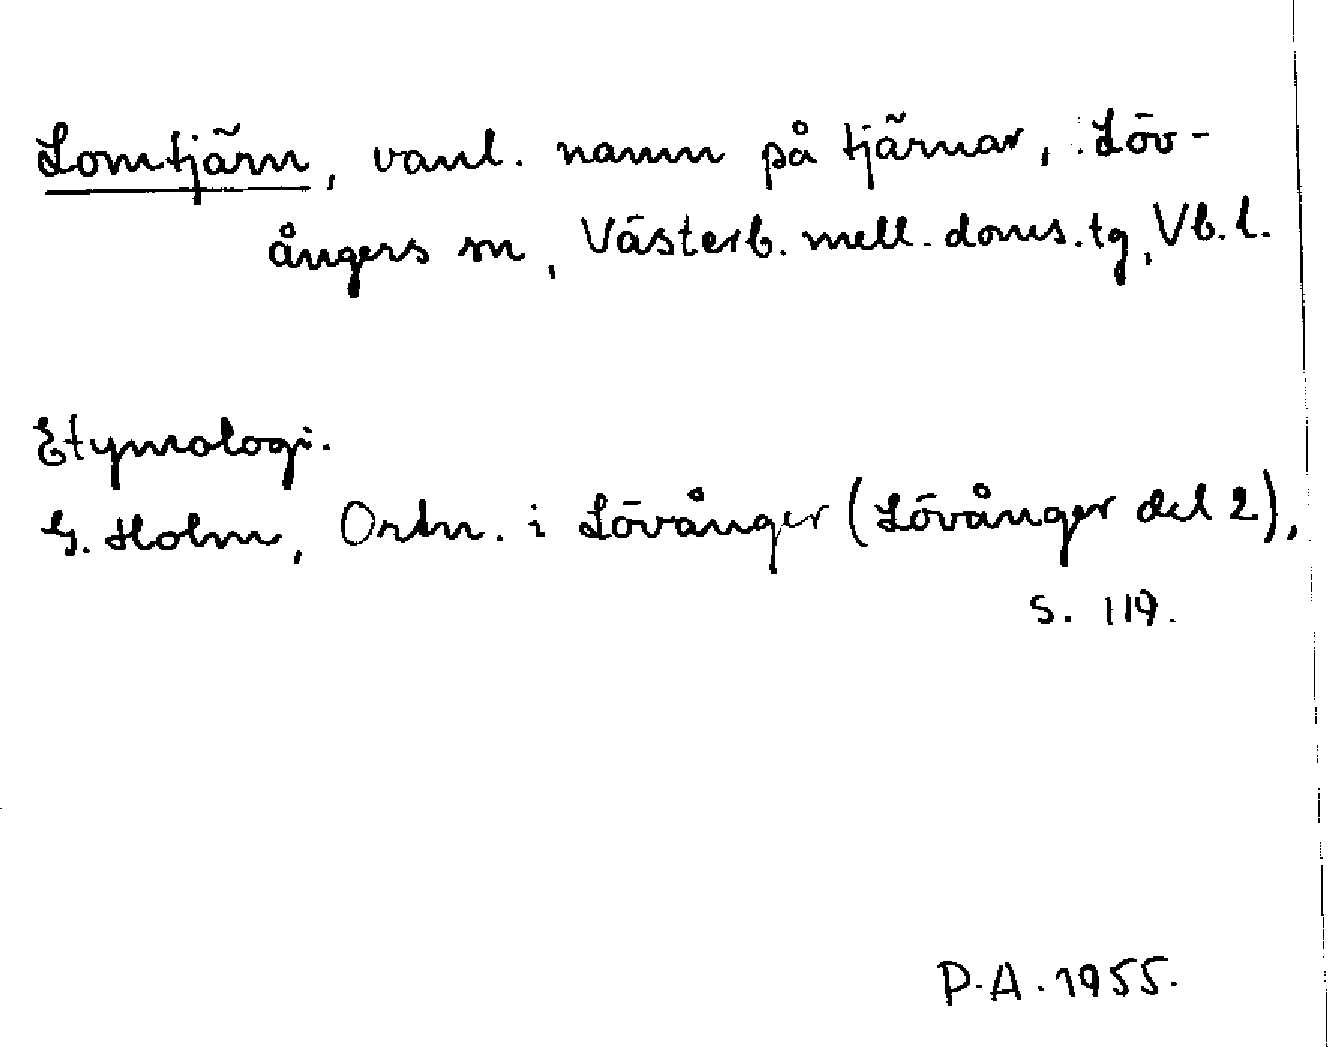 Lomtjärn, vanl. namn på tjärnar, Löv-
ångers sn, Västerb. mell. doms.tg, Vb.l.
Etymologi.
G. Holm, Ortn. i Lövånger (Lövånger del 2),
s. 119.
P.A. 1955.